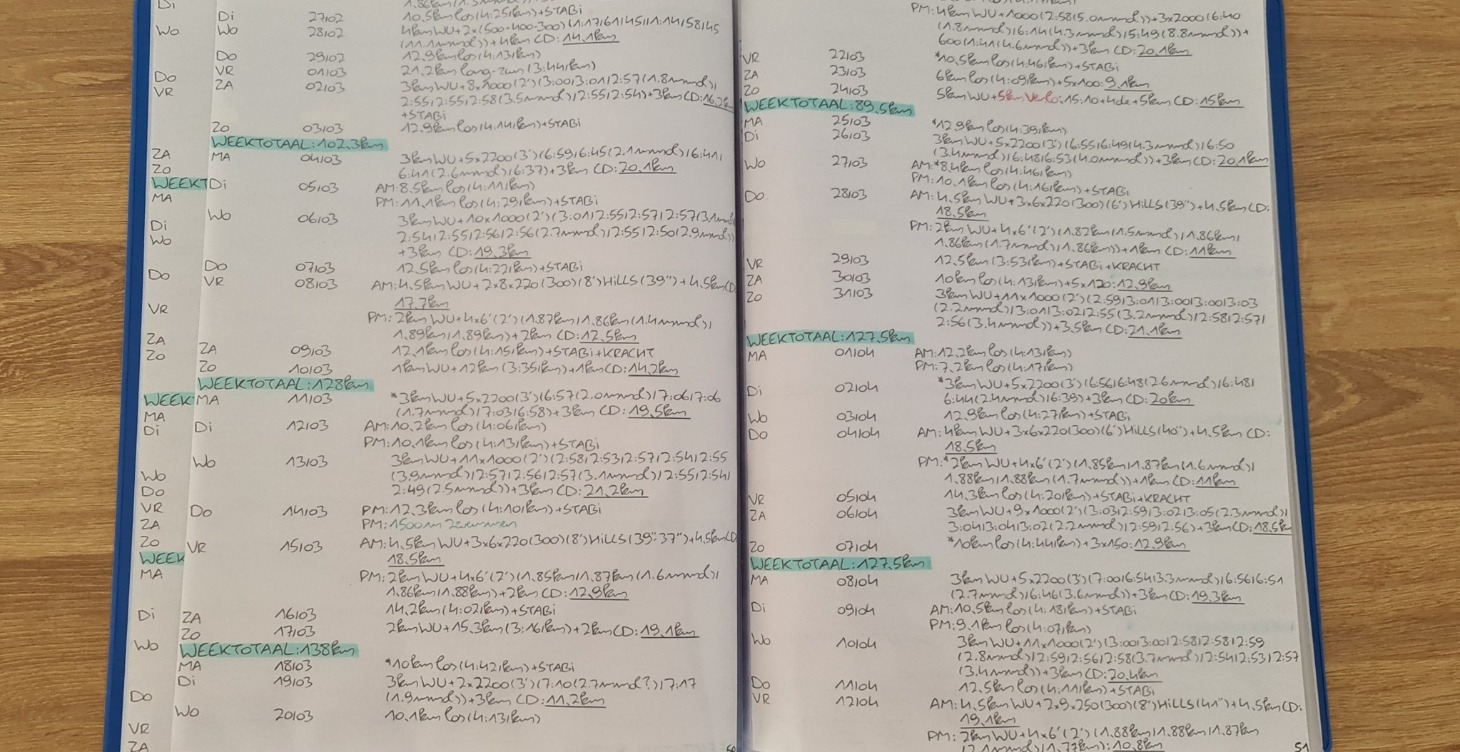 Di
Di 27/02 10.5km los(4:25/km)+STABi
Wo Wo 28/02 4km WU+2x(500-400-300)(1:17/61/45//1:14/58/45
(11.1mmol))+4km CD: 14.1km
Do 29/02 12.9km los(4:13/km)
Do VR 01/03 21.2km long-run(3:44/km)
VR ZA 02/03 3km WU+8x1000(2')(3:00/3:01/2:57(1.8mmol)/
2:55/2:55/2:58(3.5mmol)/2:55/2:54)+3km CD:
+STABi
Zo 03/03 12.9km los(4:14/km)+STABi
WEEKTOTAAL:102.3km
ZA MA 04/03 3km WU+5x2200(3')(6:59/6:45(2.1mmol)/6:41/
Zo 6:41(2.6mmol)/6:37)+3km CD: 20.1km
WEEKT Di 05/03 AM:8.5km los(4:11/km)
MA PM:11.1km los(4:29/km)+STABi
Wo 06/03 3km WU+10x1000(2')(3:01/2:55/2:57/2:57(3.1mmol)/
Di
Wo 2:54/2:55/2:56/2:56(2.7mmol)/2:55/2:50(2.9mmol))
+3km CD: 19.3km
Do 07/03 12.5km los(4:22/km)+STABi
Do VR 08/03 AM:4.5km WU+2x8x220(300)(8')HiLLS(39")+4.5km CD
VR 17.7km
PM:2km WU+4x6'(2')(1.87km/1.86km(1.4mmol)/
1.89km/1.89km)+2km CD: 12.5km
ZA
Zo ZA 09/03 12.1km los(4:15/km)+STABi+KRACHT
Zo 10/03 1km WU+12km(3:35/km)+1km CD: 14.2km
WEEKTOTAAL:128km
WEEK MA 11/03 *3km WU+5x2200(3')(6:57(2.0mmol)/7:06/7:06
MA (1.7mmol)/7:03/6:58)+3km CD: 19.5km
Di Di 12/03 AM:10.2km los(4:06/km)
PM:10.1km los(4:13/km)+STABi
Wo 13/03 3km WU+11x1000(2')(2:58/2:53/2:57/2:54/2:55
Wo (3.9mmol)/2:57/2:56/2:57(3.1mmol)/2:55/2:54/
Do 2:49(2.5mmol))+3km CD: 21.2km
VR Do 14/03 PM:12.3km los(4:10/km)+STABi
ZA PM:1500m zwemmen
Zo VR 15/03 AM:4.5km WU+3x6x220(300)(8')HiLLS(39"-37")+4.5km CD
WEEK 18.5km
MA PM:2km WU+4x6'(2')(1.85km/1.87km(1.6mmol)/
1.86km/1.88km)+2km CD: 12.9km
Di ZA 16/03 14.2km(4:02/km)+STABi
Zo 17/03 2km WU+15.3km(3:16/km)+2km CD: 19.1km
Wo WEEKTOTAAL:138km
MA 18/03 *10km los(4:42/km)+STABi
Di 19/03 3km WU+2x2200(3')(7:10(2.7mmol?)/7:17
Do (1.9mmol))+3km CD: 11.2km
Wo 20/03 10.1km los(4:13/km)
VR
ZA
PM:4km WU+1000(2:58(5.0mmol))+3x2000(6:40
(1.8mmol)/6:14(4.3mmol)/5:49(8.8mmol))+
600(1:41(4.6mmol))+3km CD: 20.1km
VR 22/03 *10.5km los(4:46/km)+STABi
ZA 23/03 6km los(4:09/km)+5x100: 9.1km
Zo 24/03 5km WU+5km Venlo:15:10+4de+5km CD: 15km
WEEKTOTAAL:89.5km
MA 25/03 *12.9km los(4:39/km)
Di 26/03 3km WU+5x2200(3')(6:55/6:49(4.3mmol)/6:50
(3.4mmol)/6:48/6:53(4.0mmol))+3km CD: 20.1km
Wo 27/03 AM:*8.4km los(4:46/km)
PM:10.1km los(4:16/km)+STABi
Do 28/03 AM:4.5km WU+3x6x220(300)(6')HiLLS(39")+4.5km CD:
18.5km
PM:2km WU+4x6'(2')(1.82km(1.5mmol)/1.86km/
1.86km(1.7mmol)/1.86km))+1km CD: 11km
VR 29/03 12.5km(3:53/km)+STABi+KRACHT
ZA 30/03 10km los(4:13/km)+5x120: 12.9km
Zo 31/03 3km WU+11x1000(2')(2:59/3:01/3:00/3:00/3:03
(2.2mmol)/3:01/3:02/2:55(3.2mmol)/2:58/2:57/
2:56(3.4mmol))+3.5km CD: 21.1km
WEEKTOTAAL:127.5km
MA 01/04 AM:12.2km los(4:13/km)
PM:7.2km los(4:17/km)
Di 02/04 *3km WU+5x2200(3')(6:56/6:48(2.6mmol)/6:48/
6:44(2.4mmol)/6:39)+3km CD: 20km
Wo 03/04 12.9km los(4:27/km)+STABi
Do 04/04 AM:4km WU+3x6x220(300)(6')HiLLS(40")+4.5km CD:
18.5km
PM:*2km WU+4x6'(2')(1.85km/1.87km(1.6mmol)/
1.88km/1.88km(1.7mmol))+1km CD: 11km
VR 05/04 14.3km los(4:20/km)+STABi+KRACHT
ZA 06/04 3km WU+9x1000(2')(3:03/2:59/3:02/3:05(2.3mmol)/
3:04/3:04/3:02(2.2mmol)/2:59/2:56)+3km CD: 18.5km
Zo 07/04 *10km los(4:44/km)+3x150: 12.9km
WEEKTOTAAL:127.5km
MA 08/04 3km WU+5x2200(3')(7:00/6:54(3.3mmol)/6:56/6:51
(2.7mmol)/6:46(3.6mmol))+3km CD: 19.3km
Di 09/04 AM:10.5km los(4:18/km)+STABi
PM:9.1km los(4:07/km)
Wo 10/04 3km WU+11x1000(2')(3:00/3:00/2:58/2:58/2:59
(2.8mmol)/2:59/2:56/2:58(3.7mmol)/2:54/2:53/2:57
(3.4mmol))+3km CD: 20.4km
Do 11/04 12.5km los(4:11/km)+STABi
VR 12/04 AM:4.5km WU+2x9x250(300)(8')HiLLS(41")+4.5km CD:
19.1km
PM:2km WU+4x6'(2')(1.88km/1.88km/1.87km
(2.1mmol)/1.77km): 10.8km
51